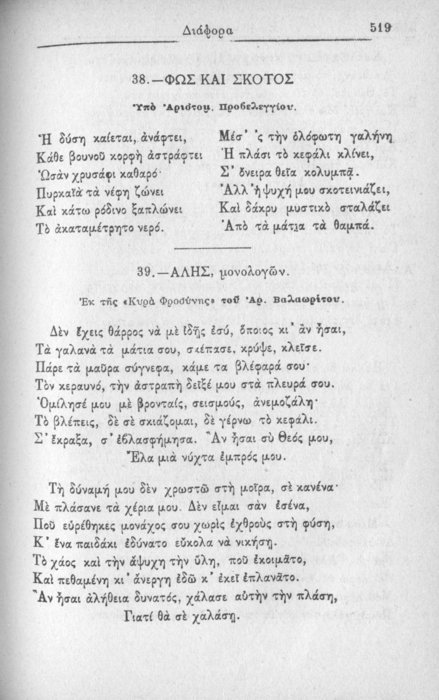 Διάφορα
519
38.—ΦΩΣ ΚΑΙ ΣΚΟΤΟΣ
Ὑπὸ Ἀριστομ. Προβελεγγίου.
Ἡ δύση καίεται, ἀνάφτει,
Κάθε βουνοῦ κορφὴ ἀστράφτει
Ὡσὰν χρυσάφι καθαρό·
Πυρκαῖα τὰ νέφη ζώνει
Καὶ κάτω ῥόδινο ξαπλώνει
Τὸ ἀκαταμέτρητο νερό.
Μέσ' 'ς τὴν ὁλόφωτη γαλήνη
Ἡ πλάσι τὸ κεφάλι κλίνει,
Σ' ὄνειρα θεῖα κολυμπᾷ.
Ἀλλ' ἡ ψυχή μου σκοτεινιάζει,
Καὶ δάκρυ μυστικὸ σταλάζει
Ἀπὸ τὰ μάτια τὰ θαμπά.
39.—ΑΛΗΣ, μονολογῶν.
Ἐκ τῆς «Κυρὰ Φροσύνης» τοῦ Ἀρ. Βαλαωρίτου.
Δὲν ἔχεις θάρρος νὰ μὲ ἰδῇς ἐσύ, ὅποιος κι' ἂν ἦσαι,
Τὰ γαλανὰ τὰ μάτια σου, σκέπασε, κρύψε, κλεῖσε.
Πάρε τὰ μαῦρα σύγνεφα, κάμε τα βλέφαρά σου·
Τὸν κεραυνό, τὴν ἀστραπὴ δεῖξέ μου στὰ πλευρά σου.
Ὁμίλησέ μου μὲ βρονταίς, σεισμούς, ἀνεμοζάλη·
Τὸ βλέπεις, δὲ σὲ σκιάζομαι, δὲ γέρνω τὸ κεφάλι.
Σ' ἔκραξα, σ' ἐβλασφήμησα. Ἂν ἦσαι σὺ Θεός μου,
Ἔλα μιὰ νύχτα ἐμπρός μου.
Τὴ δύναμή μου δὲν χρωστῶ στὴ μοῖρα, σὲ κανένα·
Μὲ πλάσανε τὰ χέρια μου. Δὲν εἶμαι σὰν ἐσένα,
Ποῦ εὑρέθηκες μονάχος σου χωρὶς ἐχθροὺς στὴ φύση,
Κ' ἕνα παιδάκι ἐδύνατο εὔκολα νὰ νικήσῃ.
Τὸ χάος καὶ τὴν ἄψυχη τὴν ὕλη, ποῦ ἐκοιμᾶτο,
Καὶ πεθαμένη κι' ἄνεργη ἐδῶ κ' ἐκεῖ ἐπλανᾶτο.
Ἂν ἦσαι ἀλήθεια δυνατός, χάλασε αὐτὴν τὴν πλάση,
Γιατὶ θὰ σὲ χαλάσῃ.